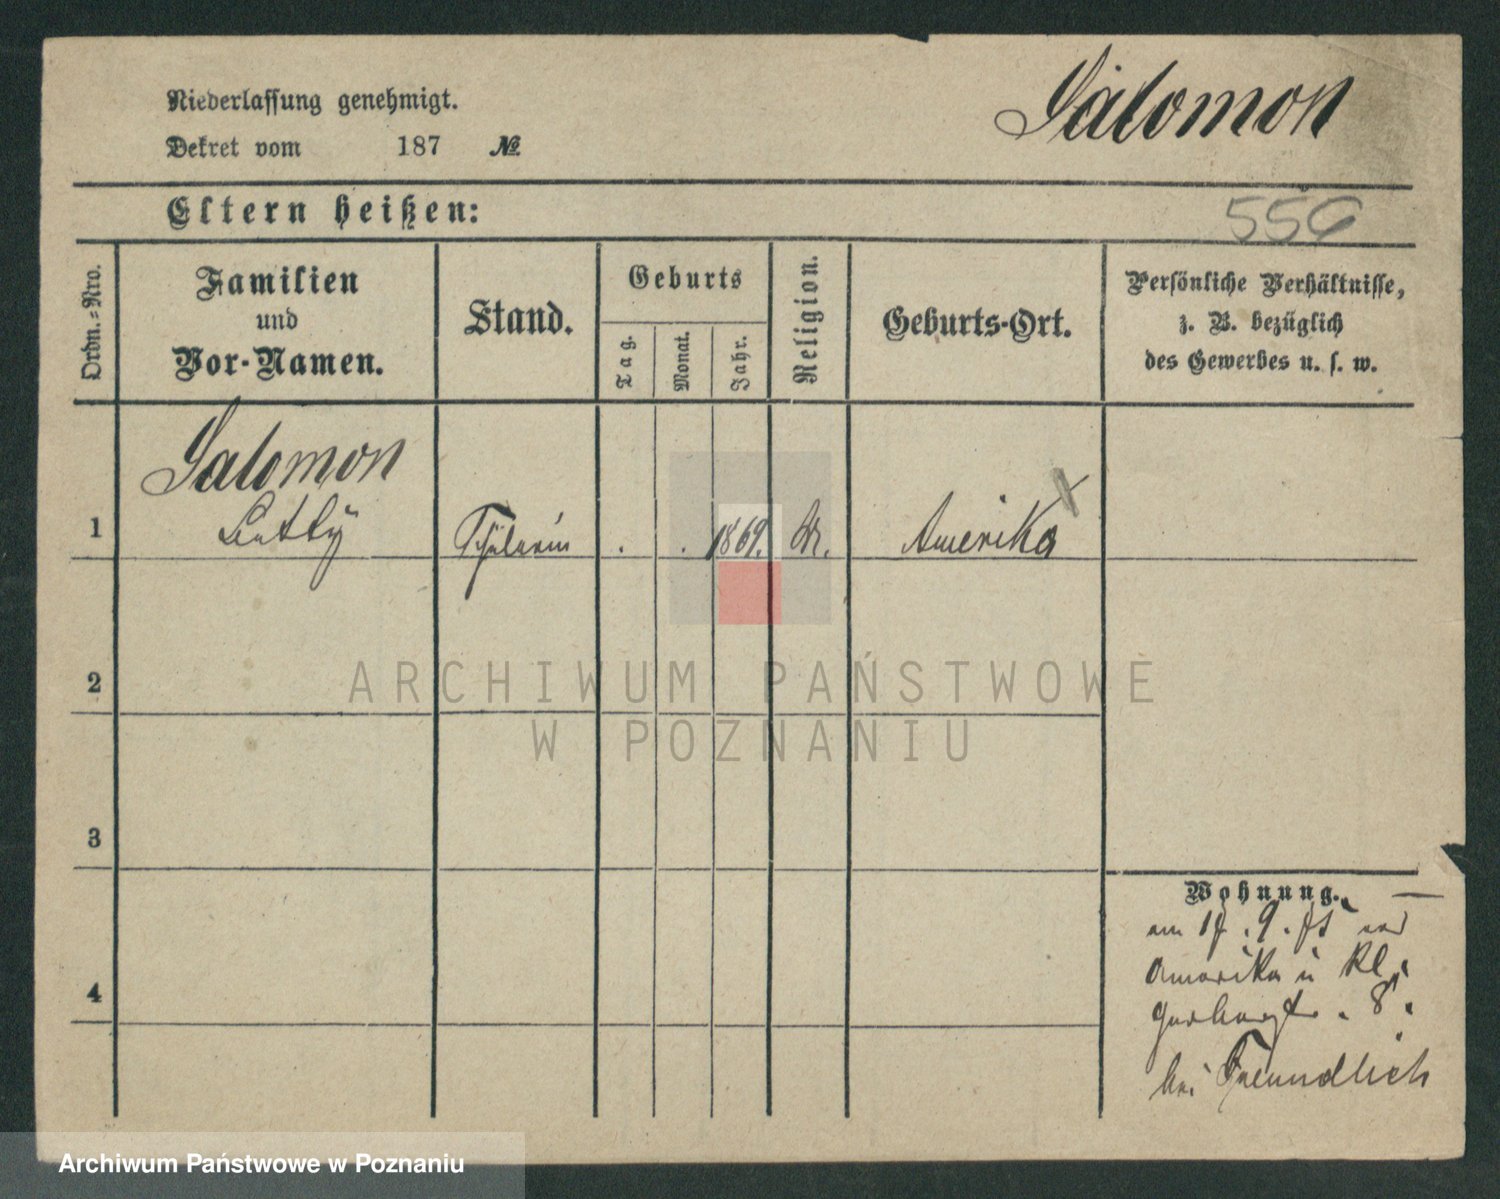 Salomon
Niederlassung genehmigt.
Dekret vom 187 №
Eltern heißen:
556
Ordn.-Nro.
Familien
und
Vor-Namen.
Stand.
Geburts
Tag.
Monat.
Jahr.
Religion.
Geburts-Ort.
Persönliche Verhältnisse,
z. B. bezüglich
des Gewerbes u. s. w.
Salomon
1
Schülerin . . 1869. Amerika
2
ARCHIWUM PAŃSTWOWE
W POZNANIU
3
Wohnung.
am 9. von
Amerika Kl.
Gerberstr. 8.
bei Freundlich
4
Archiwum Państwowe w Poznaniu